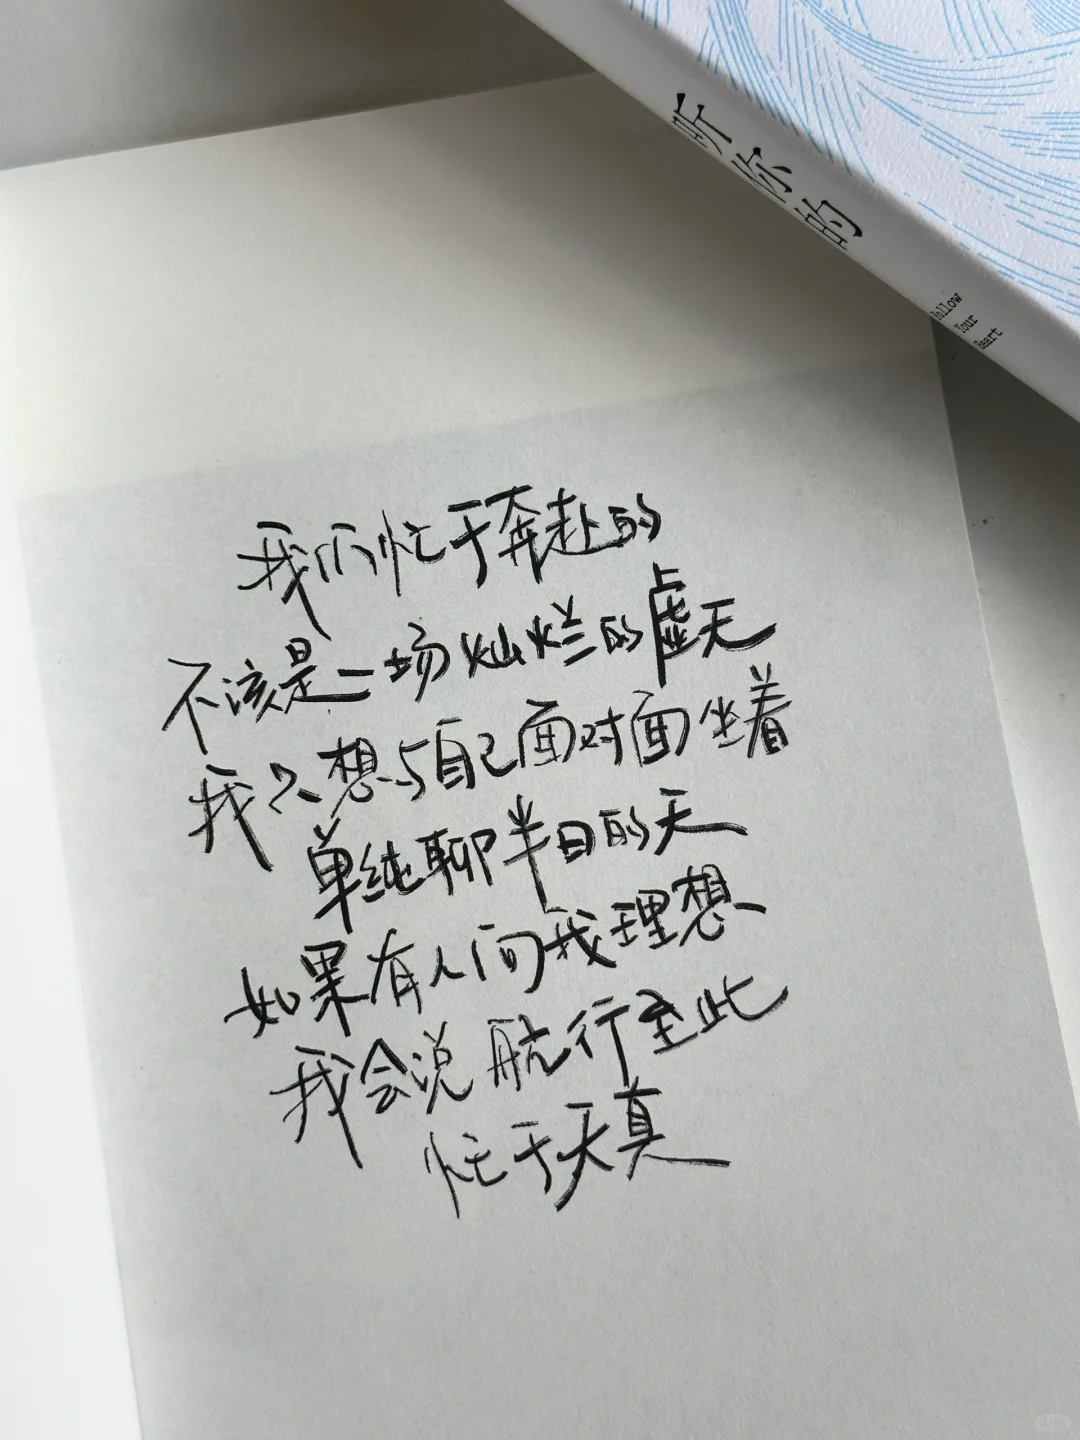 听你的
Follow
Your
Heart
我们忙于奔赴的
不该是一场灿烂的虚无
我只想与自己面对面坐着
单纯聊半日的天
如果有人问我理想
我会说航行至此
忙于天真